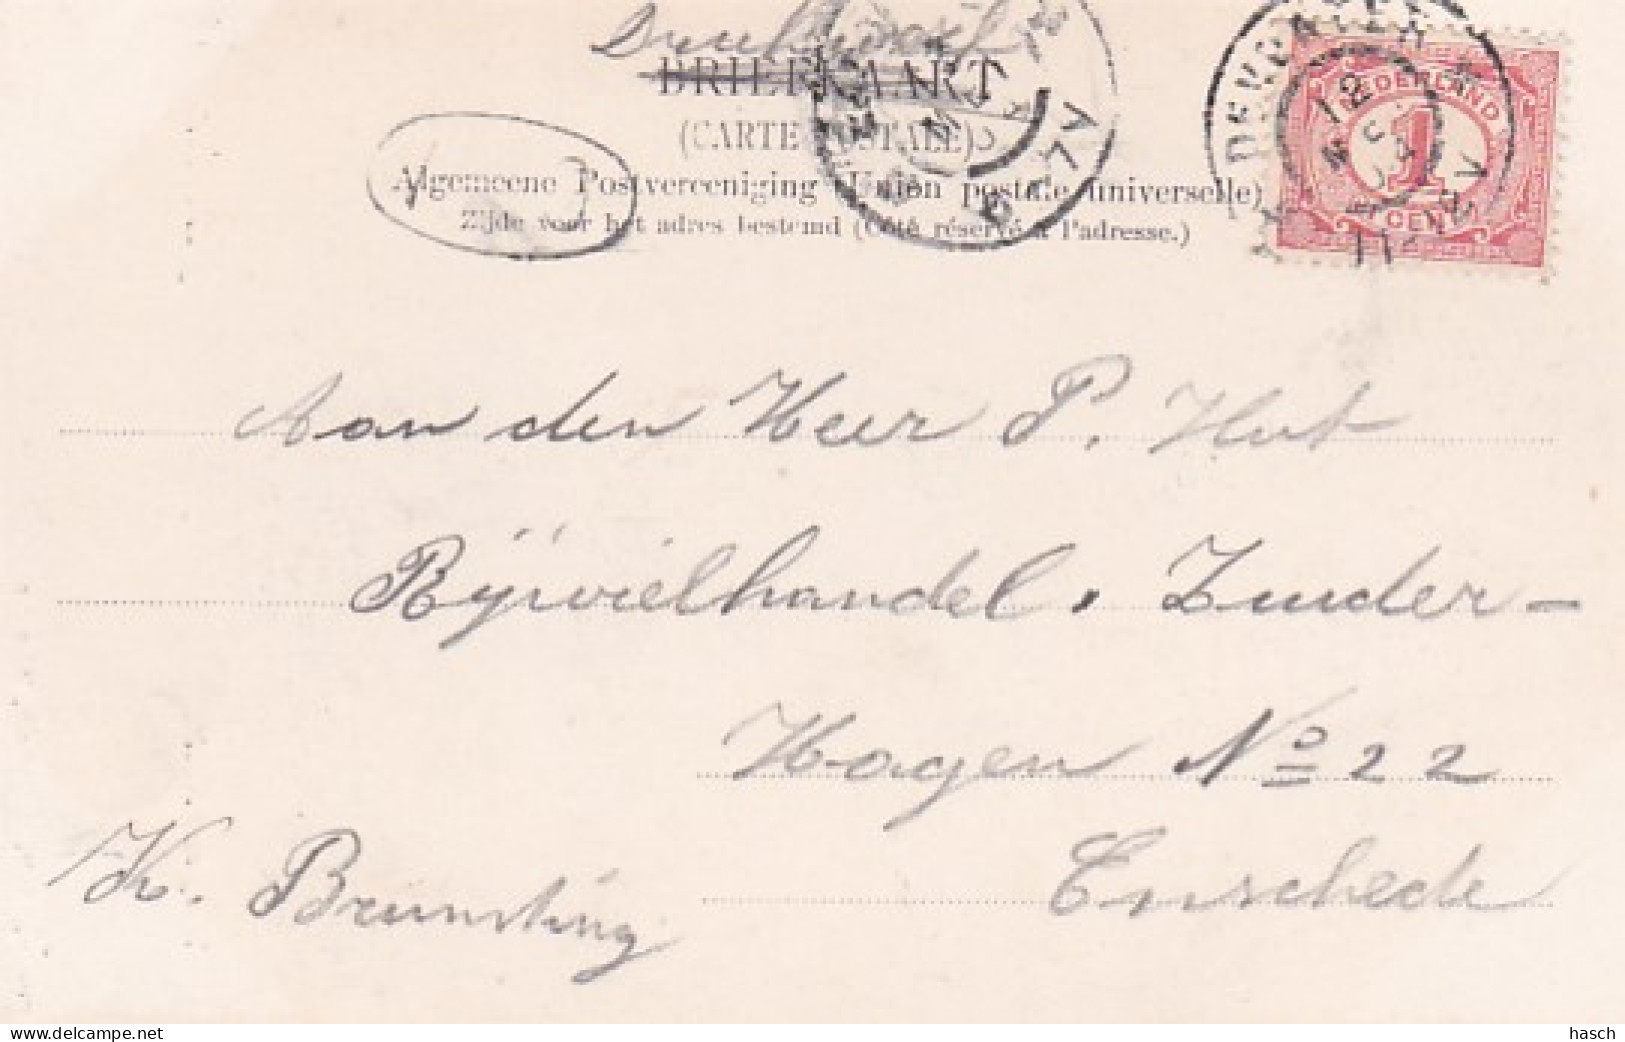 Drukwerk
BRIEFKAART
(CARTE POSTALE)
Algemeene Postvereeniging (Union postale universelle)
Zijde voor het adres bestemd (Côté réservé à l'adresse.)
DEVENTER
12
NEDERLAND
1
CENT
Aan den Heer P. Hut
Rÿwielhandel, Zuider-
Hagen No 22
Enschede
K. Brunsting
www.delcampe.net
hasch